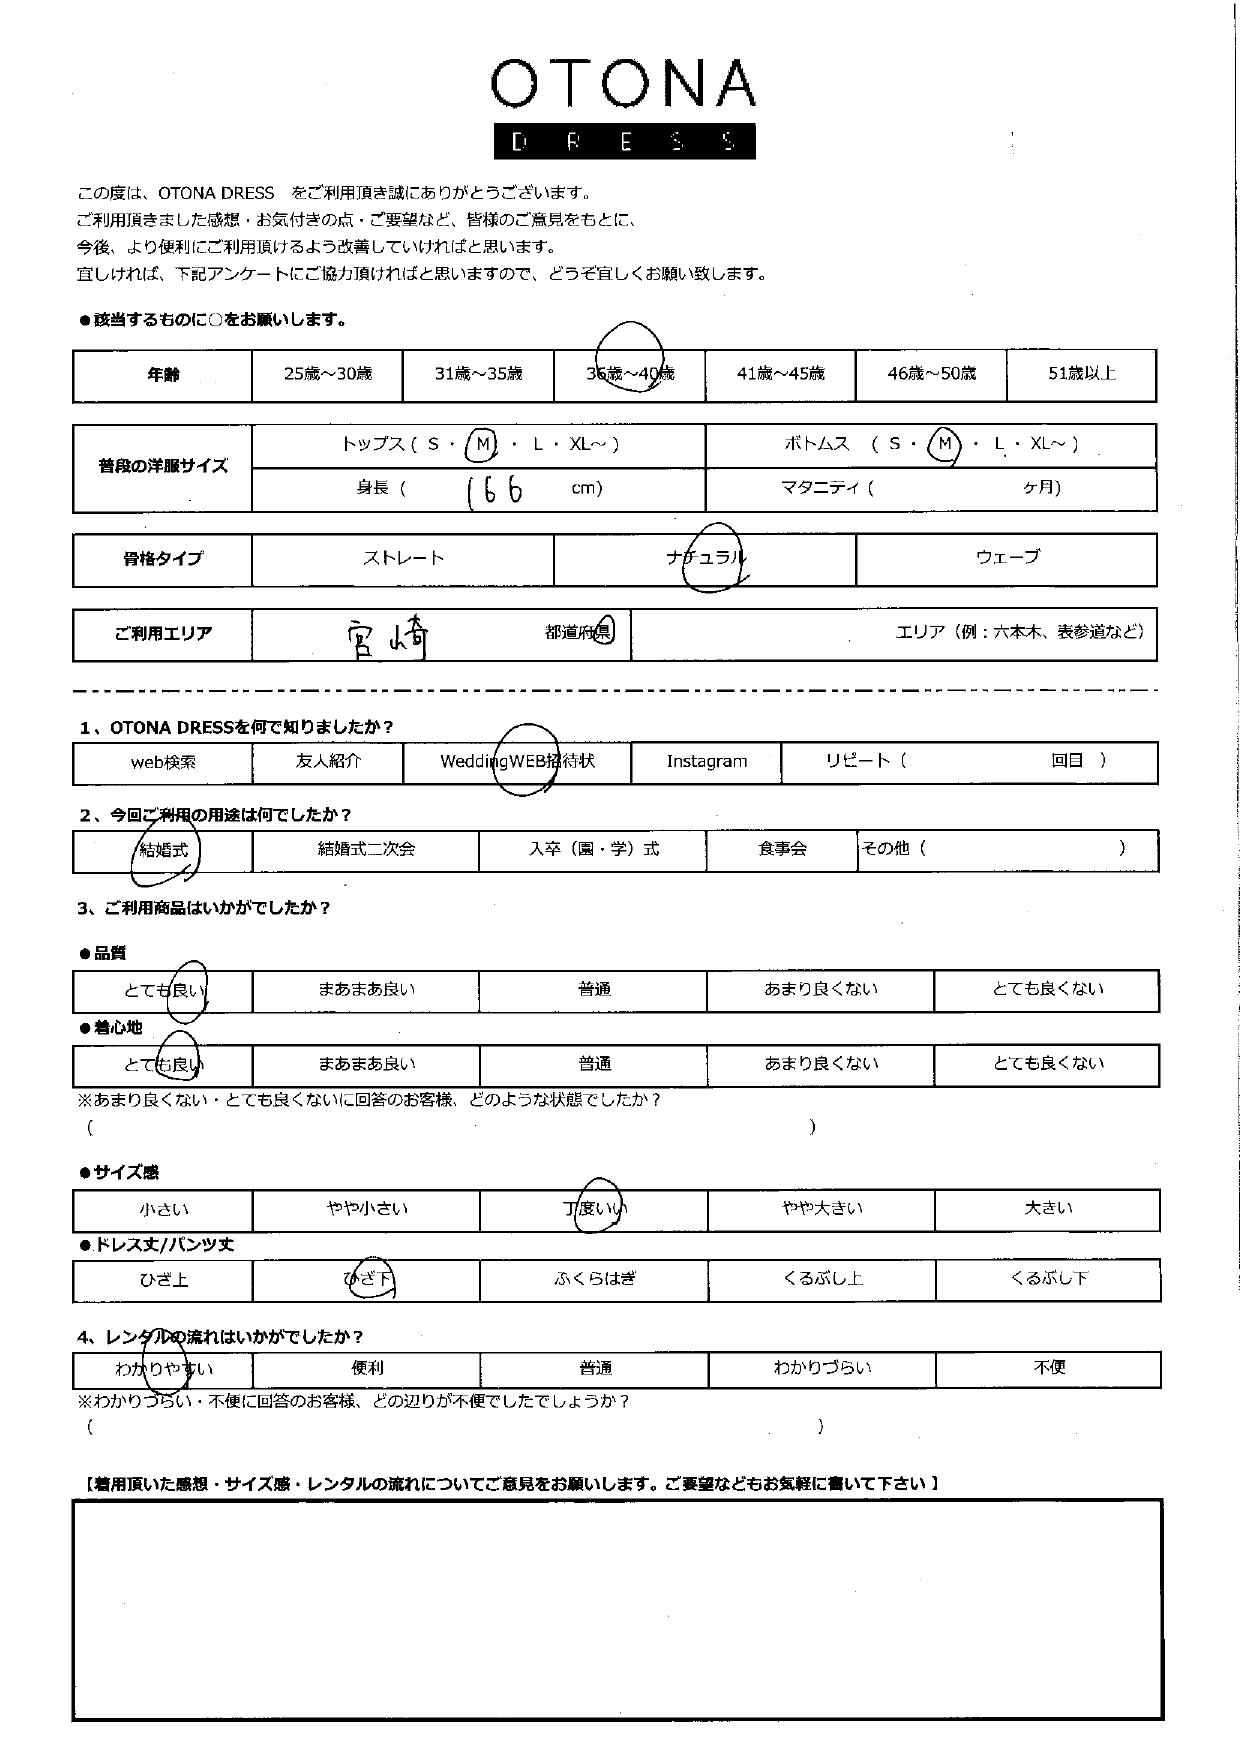 OTONA
DRESS
この度は、OTONA DRESS　をご利用頂き誠にありがとうございます。
ご利用頂きました感想・お気付きの点・ご要望など、皆様のご意見をもとに、
今後、より便利にご利用頂けるよう改善していければと思います。
宜しければ、下記アンケートにご協力頂ければと思いますので、どうぞ宜しくお願い致します。
●該当するものに○をお願いします。
年齢 25歳～30歳 31歳～35歳 36歳～40歳 41歳～45歳 46歳～50歳 51歳以上
普段の洋服サイズ
トップス ( S ・ M ・ L ・ XL～ ) ボトムス ( S ・ M ・ L ・ XL～ )
身長 ( 166 cm) マタニティ ( ケ月)
骨格タイプ ストレート ナチュラル ウェーブ
ご利用エリア 宮崎 都道府県 エリア（例：六本木、表参道など）
1、OTONA DRESSを何で知りましたか？
web検索 友人紹介 WeddingWEB招待状 Instagram リピート（ 回目 ）
2、今回ご利用の用途は何でしたか？
結婚式 結婚式二次会 入卒（園・学）式 食事会 その他（ ）
3、ご利用商品はいかがでしたか？
●品質
とても良い まあまあ良い 普通 あまり良くない とても良くない
●着心地
とても良い まあまあ良い 普通 あまり良くない とても良くない
※あまり良くない・とても良くないに回答のお客様、どのような状態でしたか？
( )
●サイズ感
小さい やや小さい 丁度いい やや大きい 大きい
●ドレス丈/パンツ丈
ひざ上 ひざ下 ふくらはぎ くるぶし上 くるぶし下
4、レンタルの流れはいかがでしたか？
わかりやすい 便利 普通 わかりづらい 不便
※わかりづらい・不便に回答のお客様、どの辺りが不便でしたでしょうか？
( )
【着用頂いた感想・サイズ感・レンタルの流れについてご意見をお願いします。ご要望などもお気軽に書いて下さい 】